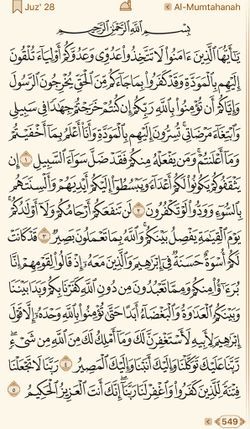 Juz' 28
Al-Mumtahanah
بِسْمِ اللَّهِ الرَّحْمَٰنِ الرَّحِيمِ
يَا أَيُّهَا الَّذِينَ آمَنُوا لَا تَتَّخِذُوا عَدُوِّي وَعَدُوَّكُمْ أَوْلِيَاءَ تُلْقُونَ
إِلَيْهِم بِالْمَوَدَّةِ وَقَدْ كَفَرُوا بِمَا جَاءَكُم مِّنَ الْحَقِّ يُخْرِجُونَ الرَّسُولَ
وَإِيَّاكُمْ أَن تُؤْمِنُوا بِاللَّهِ رَبِّكُمْ إِن كُنتُمْ خَرَجْتُمْ جِهَادًا فِي سَبِيلِي
وَابْتِغَاءَ مَرْضَاتِي تُسِرُّونَ إِلَيْهِم بِالْمَوَدَّةِ وَأَنَا أَعْلَمُ بِمَا أَخْفَيْتُمْ
وَمَا أَعْلَنتُمْ وَمَن يَفْعَلْهُ مِنكُمْ فَقَدْ ضَلَّ سَوَاءَ السَّبِيلِ ١ إِن
يَثْقَفُوكُمْ يَكُونُوا لَكُمْ أَعْدَاءً وَيَبْسُطُوا إِلَيْكُمْ أَيْدِيَهُمْ وَأَلْسِنَتَهُم
بِالسُّوءِ وَوَدُّوا لَوْ تَكْفُرُونَ ٢ لَن تَنفَعَكُمْ أَرْحَامُكُمْ وَلَا أَوْلَادُكُمْ
يَوْمَ الْقِيَامَةِ يَفْصِلُ بَيْنَكُمْ وَاللَّهُ بِمَا تَعْمَلُونَ بَصِيرٌ ٣ قَدْ كَانَتْ
لَكُمْ أُسْوَةٌ حَسَنَةٌ فِي إِبْرَاهِيمَ وَالَّذِينَ مَعَهُ إِذْ قَالُوا لِقَوْمِهِمْ إِنَّا
بُرَآءُ مِنكُمْ وَمِمَّا تَعْبُدُونَ مِن دُونِ اللَّهِ كَفَرْنَا بِكُمْ وَبَدَا بَيْنَنَا
وَبَيْنَكُمُ الْعَدَاوَةُ وَالْبَغْضَاءُ أَبَدًا حَتَّىٰ تُؤْمِنُوا بِاللَّهِ وَحْدَهُ إِلَّا قَوْلَ
إِبْرَاهِيمَ لِأَبِيهِ لَأَسْتَغْفِرَنَّ لَكَ وَمَا أَمْلِكُ لَكَ مِنَ اللَّهِ مِن شَيْءٍ
رَّبَّنَا عَلَيْكَ تَوَكَّلْنَا وَإِلَيْكَ أَنَبْنَا وَإِلَيْكَ الْمَصِيرُ ٤ رَبَّنَا لَا تَجْعَلْنَا
فِتْنَةً لِّلَّذِينَ كَفَرُوا وَاغْفِرْ لَنَا رَبَّنَا إِنَّكَ أَنتَ الْعَزِيزُ الْحَكِيمُ ٥
549